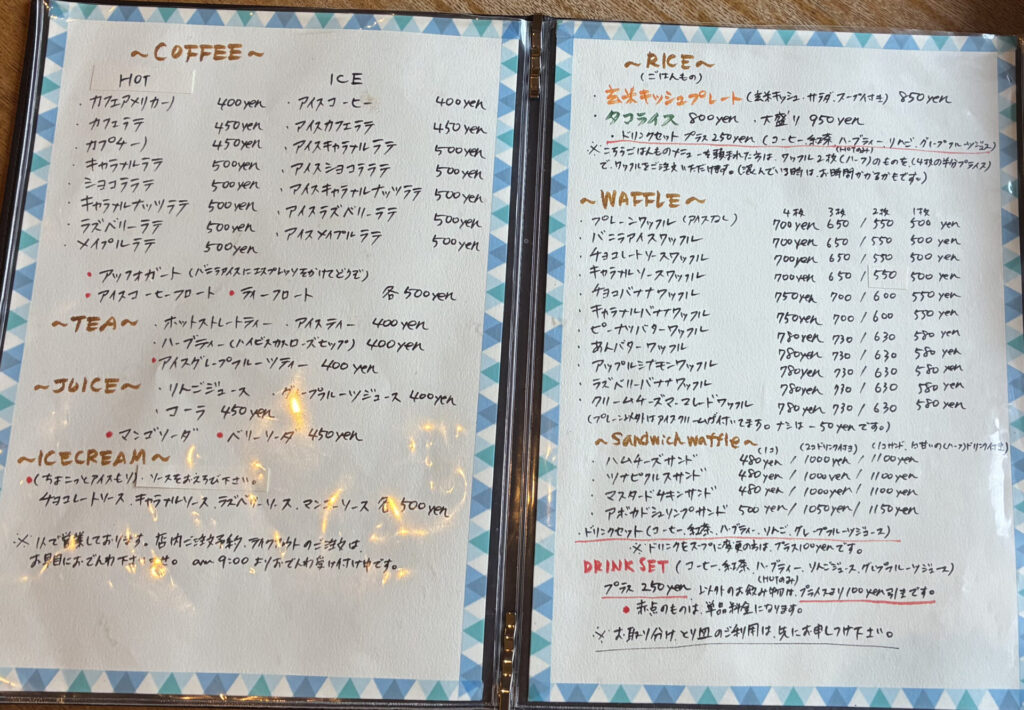 ~COFFEE~
HOT
・カフェアメリカーノ 400yen
・カフェラテ 450yen
・カプチーノ 450yen
・キャラメルラテ 500yen
・ショコララテ 500yen
・キャラメルナッツラテ 500yen
・ラズベリーラテ 500yen
・メイプルラテ 500yen
ICE
・アイスコーヒー 400yen
・アイスカフェラテ 450yen
・アイスキャラメルラテ 500yen
・アイスショコララテ 500yen
・アイスキャラメルナッツラテ 500yen
・アイスラズベリーラテ 500yen
・アイスメイプルラテ 500yen
・アッフォガート (バニラアイスにエスプレッソをかけてどうぞ)
・アイスコーヒーフロート ・ティーフロート 各500yen
~TEA~ ・ホットストレートティー ・アイスティー 400yen
・ハーブティー(ハイビスカスローズヒップ) 400yen
・アイスグレープフルーツティー 400yen
~JUICE~ ・りんごジュース ・グレープフルーツジュース 400yen
・コーラ 450yen
・マンゴソーダ ・ベリーソーダ 450yen
~ICECREAM~
・(ちょこっとアイスもり)・ソースをおえらび下さい。
チョコレートソース、キャラメルソース、ラズベリーソース、マンゴーソース 各500yen
※ 1人で営業しております。店内ご注文予約、テイクアウトのご注文は、
お早目におでんわ下さいませ。 am 9:00よりおでんわ受け付けやです。
~RICE~
(ごはんもの)
玄米キッシュプレート (玄米キッシュ・サラダ、スープ付き) 850yen
タコライス 800yen ・大盛り 950yen
・ドリンクセット プラス250yen (コーヒー、紅茶、ハーブティー、りんご、グレープフルーツジュース)
(HOTのみ)
※こちらごはんものメニューを頼まれた方は、ワッフル2枚(ハーフ)のものを(4枚の半分プライス)
で、ワッフルをご注文いただけます。(混んでいる時は、お時間がかかるかもです。)
~WAFFLE~ 4枚 3枚 2枚 1枚
・プレーンワッフル (アイスなし) 700yen 650 / 550 500 yen
・バニラアイスワッフル 700yen 650 / 550 500 yen
・チョコレートソースワッフル 700yen 650 / 550 500 yen
・キャラメルソースワッフル 700yen 650 / 550 500 yen
・チョコバナナワッフル 750yen 700 / 600 550 yen
・キャラメルバナナワッフル 750yen 700 / 600 550 yen
・ピーナツバターワッフル 780yen 730 / 630 580 yen
・あんバターワッフル 780yen 730 / 630 580 yen
・アップルシナモンワッフル 780yen 730 / 630 580 yen
・ラズベリーバナナワッフル 780yen 730 / 630 580 yen
・クリームチーズマーマレードワッフル 780yen 730 / 630 580 yen
(プレーン以外はアイスクリームが付いてます。ナシは-50yenです。)
~Sandwich waffle~ (1コ) (2コドリンク付き) (1コサンド、1コ甘いの(ハーフ)ドリンク付き)
・ハムチーズサンド 480yen / 1000yen / 1100yen
・ツナピクルスサンド 480yen / 1000yen / 1100yen
・マスタードチキンサンド 480yen / 1000yen / 1100yen
・アボカドシュリンプサンド 500yen / 1050yen / 1150yen
・ドリンクセット (コーヒー、紅茶、ハーブティー、りんご、グレープフルーツジュース)
※ドリンクをスープに変更の方は、プラス100yenです。
DRINK SET (コーヒー、紅茶、ハーブティー、りんごジュース、グレープフルーツジュース)
(HOTのみ)
プラス 250yen、以外のお飲み物は、プライスより100yen引きです。
・赤点のものは、単品料金になります。
※ お取り分け、とり皿のご利用は、先にお申しつけ下さい。